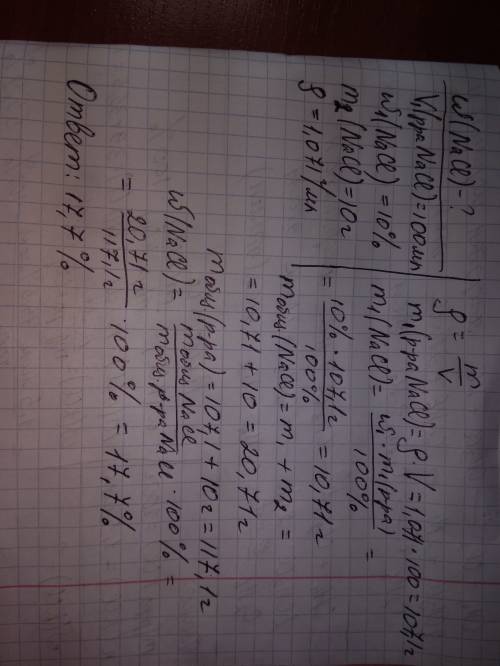 ω(NaCl) - ?
V₁(р-ра NaCl) = 100 мл
ω₁(NaCl) = 10%
m₂(NaCl) = 10 г
ρ = 1,071 г/мл
ρ = m/V
m₁(р-ра NaCl) = ρ · V = 1,071 · 100 = 107,1 г
m₁(NaCl) = ω₁ · m₁(р-ра) / 100% =
= 10% · 107,1 г / 100% = 10,71 г
m общ (NaCl) = m₁ + m₂ =
= 10,71 + 10 = 20,71 г
m общ (р-ра) = 107,1 + 10 г = 117,1 г
ω(NaCl) = m общ NaCl / m общ. р-ра NaCl · 100% =
= 20,71 г / 117,1 г · 100% = 17,7%
Ответ: 17,7%